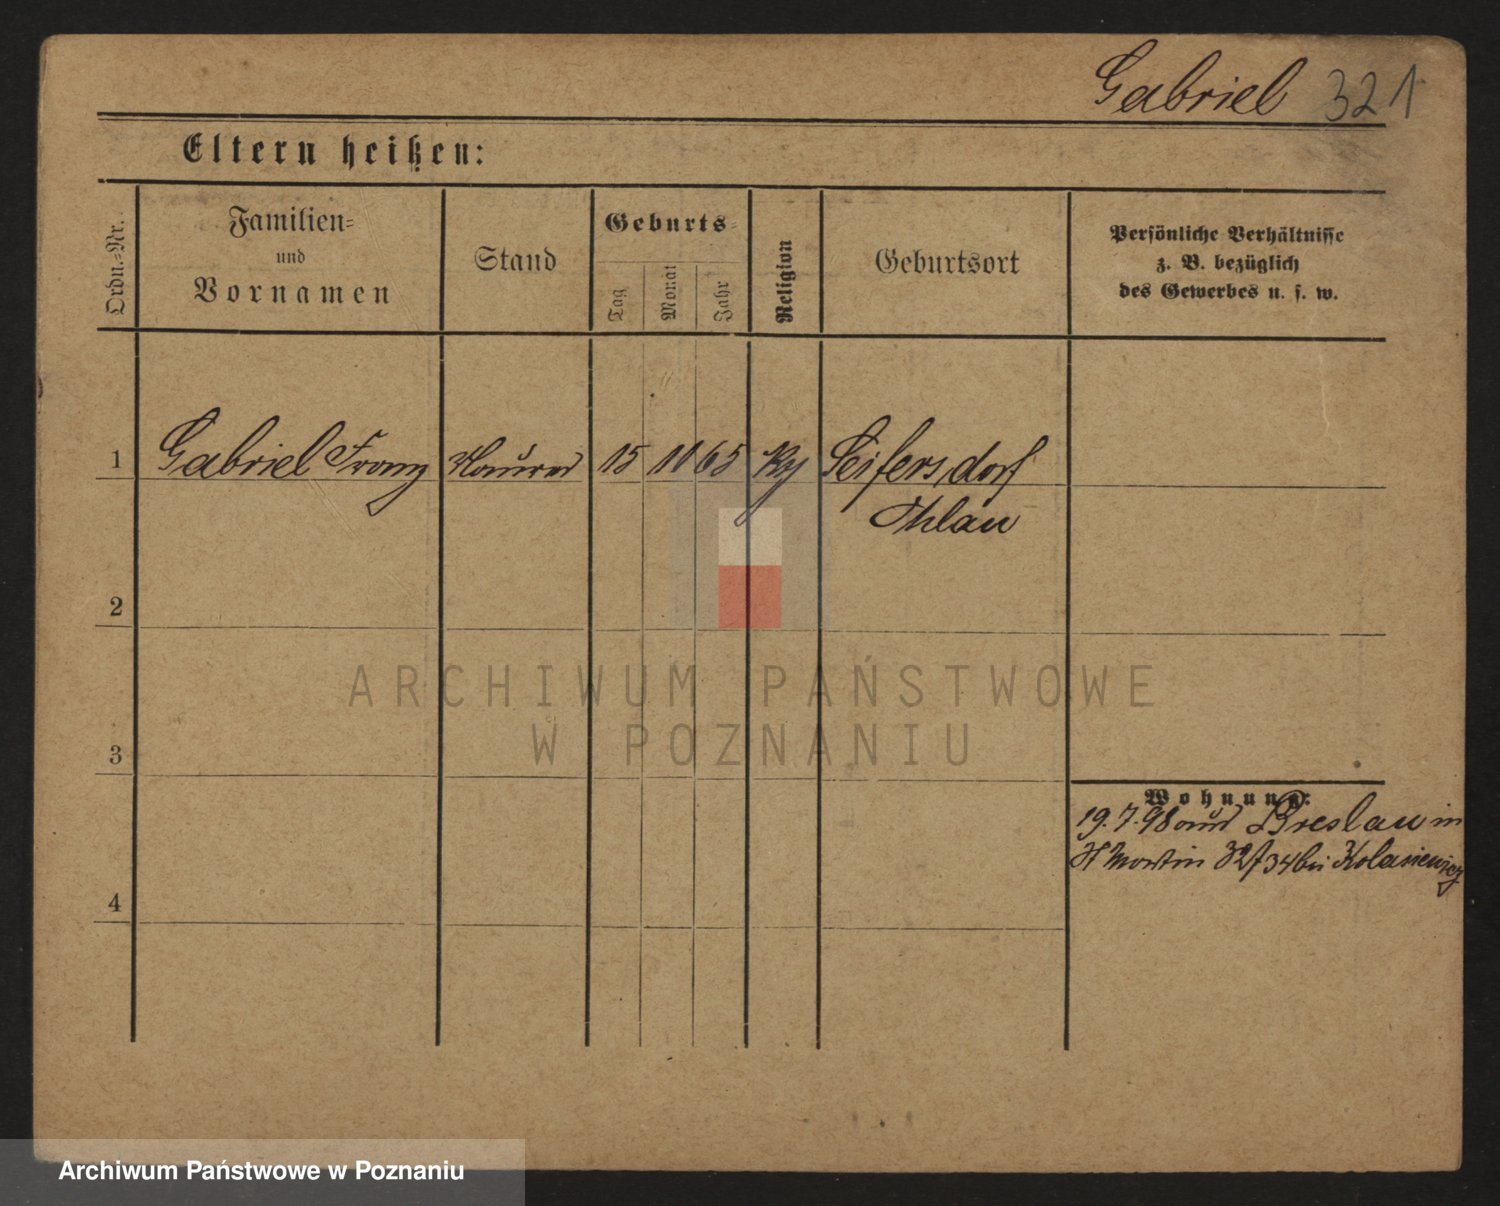 Gabriel 321
Eltern heißen:
Ordn.-Nr.
Familien-
und
Vornamen
Stand
Geburts-
Tag
Monat
Jahr
Religion
Geburtsort
Persönliche Verhältnisse
z. B. bezüglich
des Gewerbes u. s. w.
1 Gabriel Franz Maurer 15 10 65 Seifersdorf
Ohlau
2
3
4
ARCHIWUM PAŃSTWOWE
W POZNANIU
Wohnung:
19.7.98 aus Breslau in
St Martin 32/34 bei Kolasiewicz
Archiwum Państwowe w Poznaniu